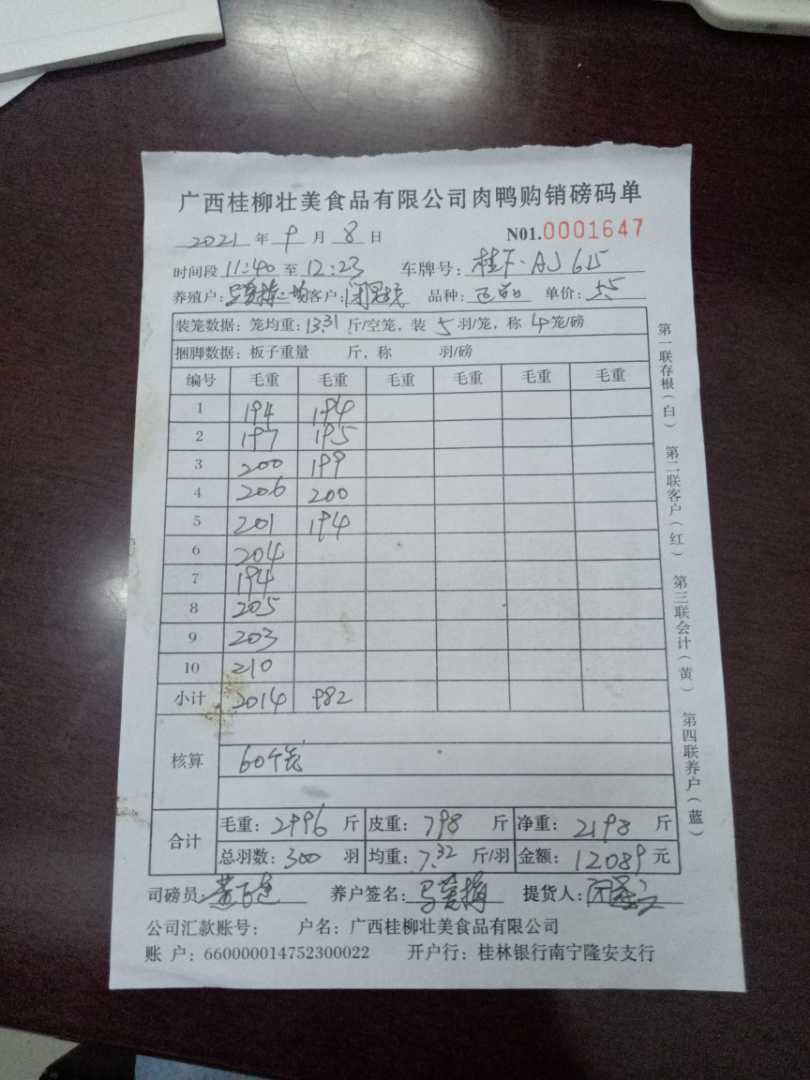 广西桂柳壮美食品有限公司肉鸭购销磅码单
2021 年 9 月 8 日 N01.0001647
时间段 11:40 至 12:23 车牌号: 桂F·AJ615
养殖户: 客户: 品种: 单价: 5.5
装笼数据: 笼均重: 13.31 斤/空笼, 装 5 羽/笼, 称 4 笼/磅
捆脚数据: 板子重量 斤, 称 羽/磅
编号 毛重 毛重 毛重 毛重 毛重 毛重
1 194 194
2 197 195
3 200 199
4 206 200
5 201 194
6 204
7 194
8 205
9 203
10 210
小计 2014 982
核算 60个笼
合计 毛重: 2996 斤 皮重: 798 斤 净重: 2198 斤
总羽数: 300 羽 均重: 7.32 斤/羽 金额: 12089 元
司磅员: 养户签名: 提货人:
公司汇款账号: 户名: 广西桂柳壮美食品有限公司
账 户: 660000014752300022 开户行: 桂林银行南宁隆安支行
第一联存根(白) 第二联客户(红) 第三联会计(黄) 第四联养户(蓝)